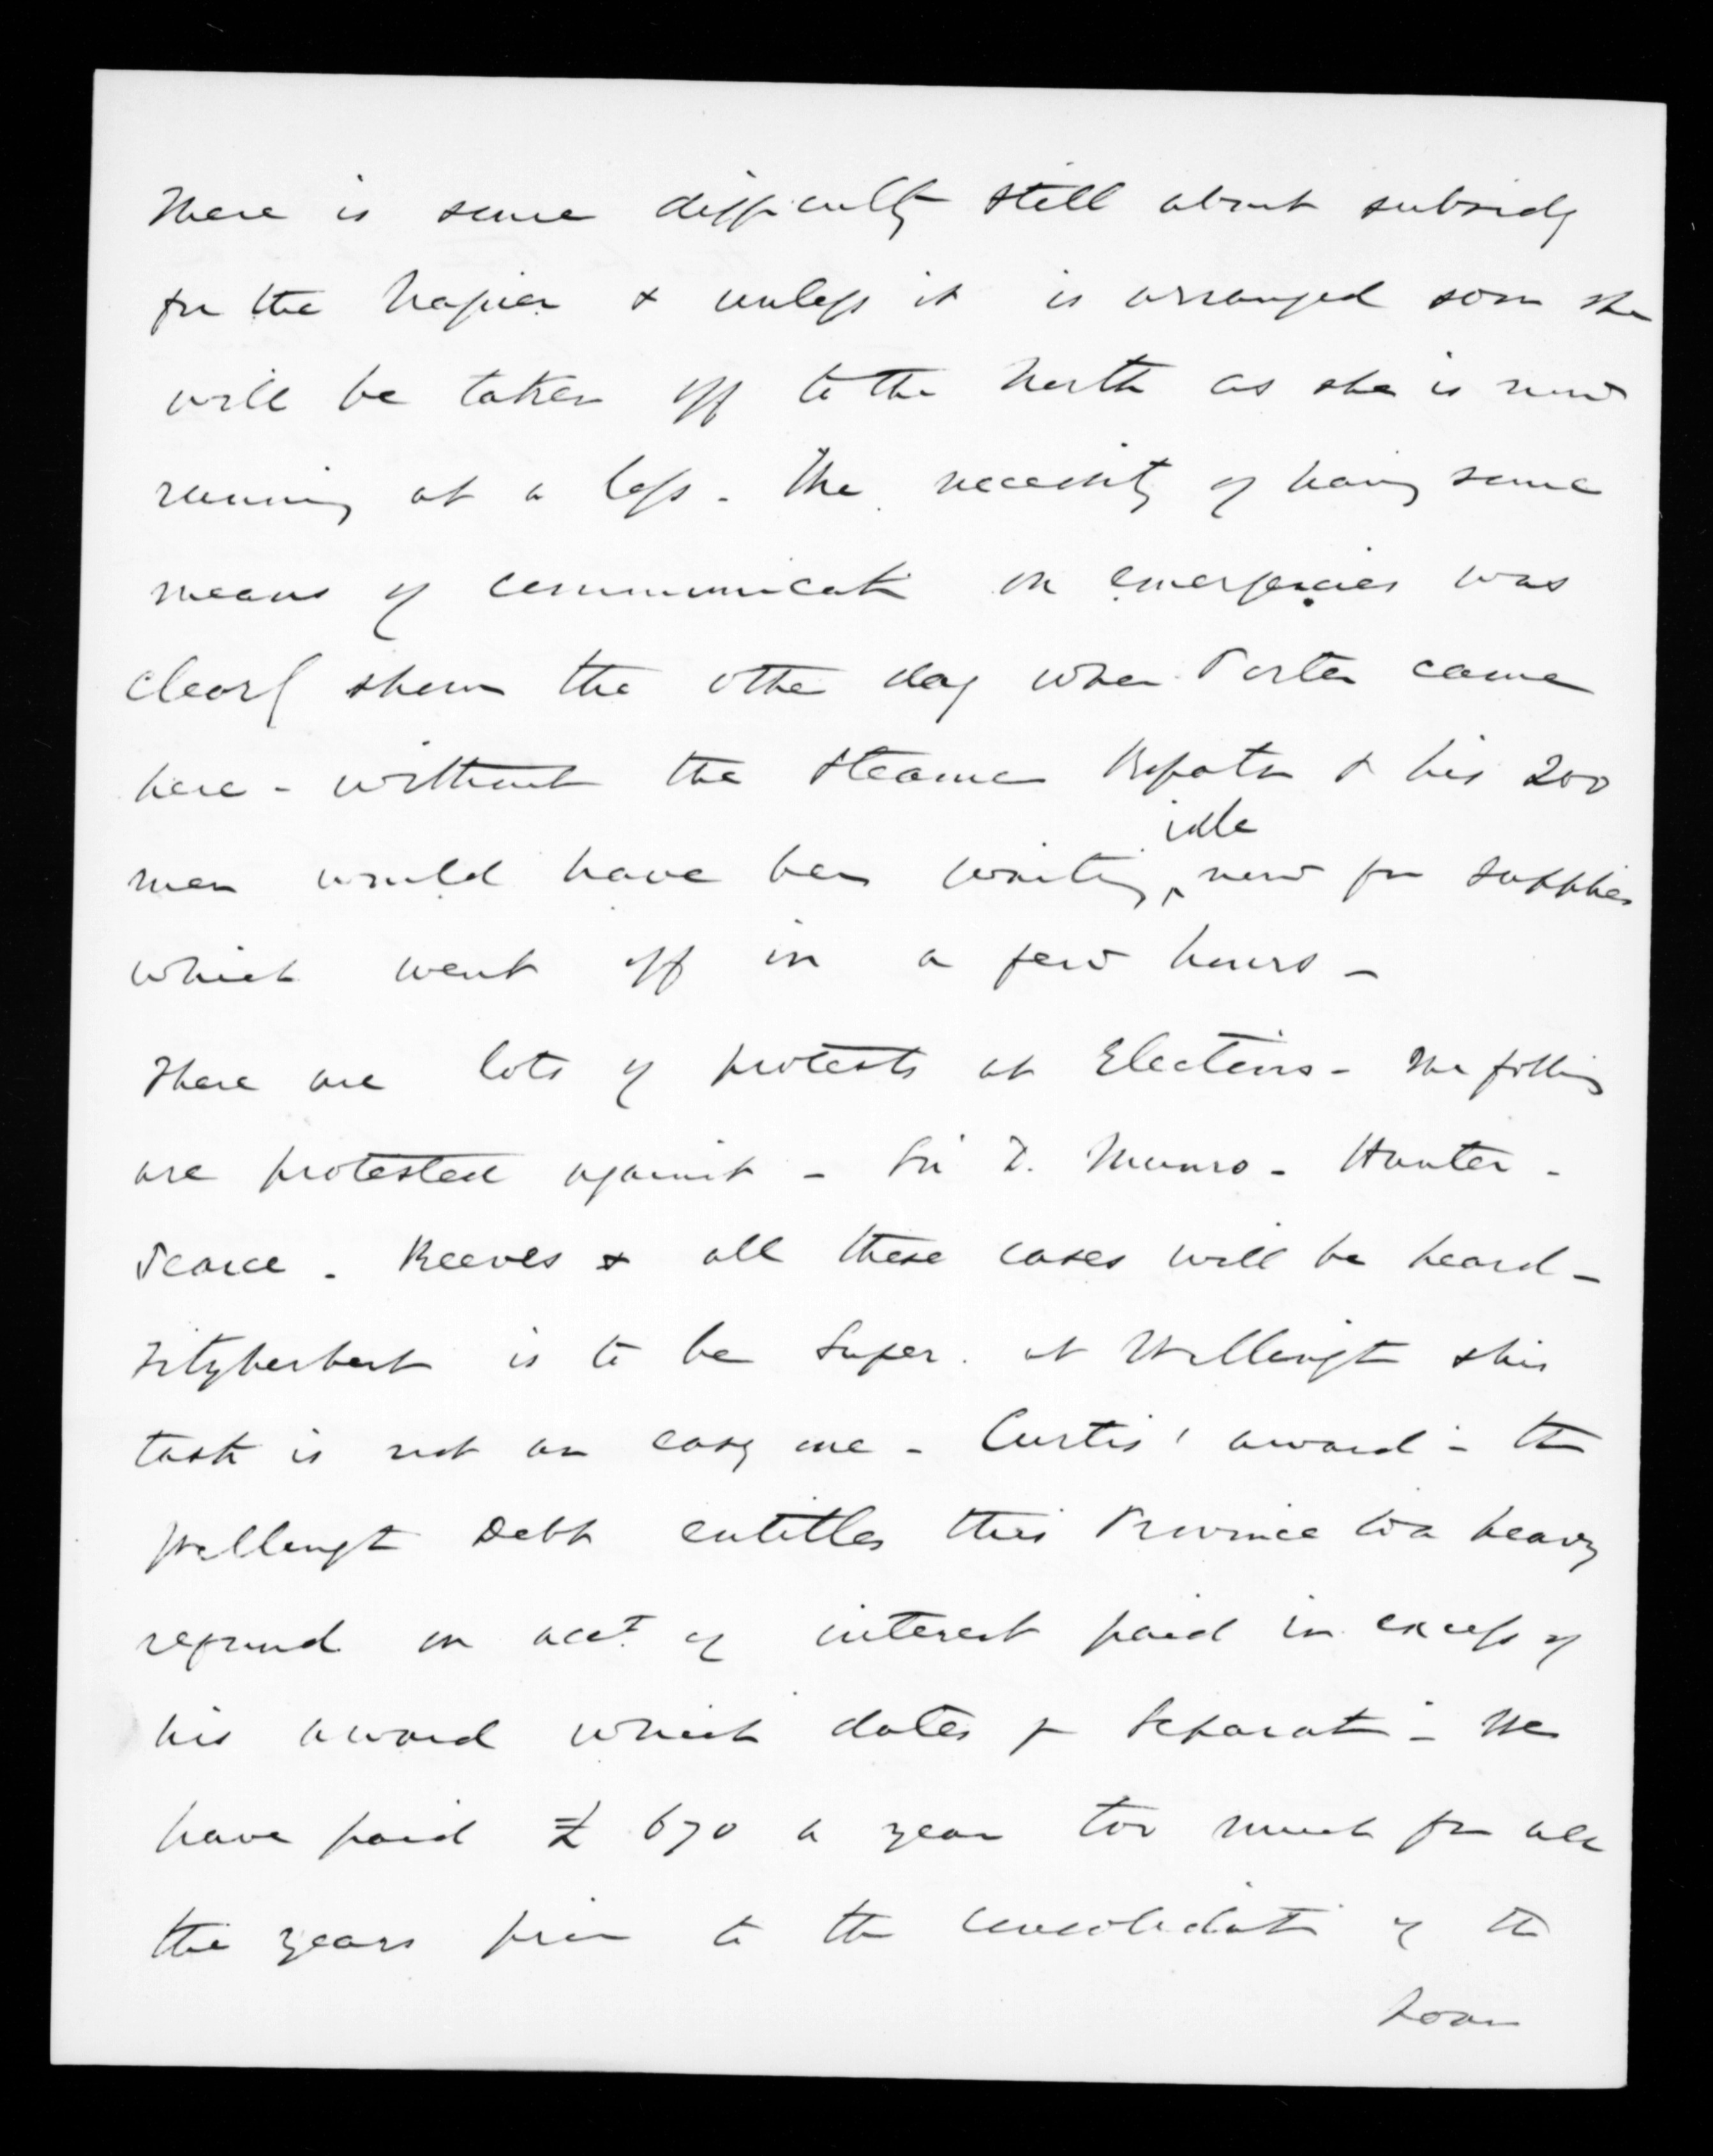 There is some difficulty still about subsidy
for the Napier & unless it is arranged soon she
will be taken off to the North as she is now
running at a loss - The necessity of having some
means of communicatn on emergencies was
clearly shewn the other day when Porter came
here - without the steamer Ropata & his 200
men would have been waiting idle now for supplies
which went off in a few hours -
There are lots of protests at Elections - The follg
are protested against - Sir D. Munro - Hunter -
Pearce - Reeves & all these cases will be heard -
Fitzherbert is to be Super. at Wellingtn & his
task is not an easy one - Curtis' award in the
Wellingtn Debt entitles this Province to a heavy
refund on acct of interest paid in excess of
his award which dates fr Separatn - We
have paid £ 670 a year too much for all
the years prior to the consolidatn of the
Loan